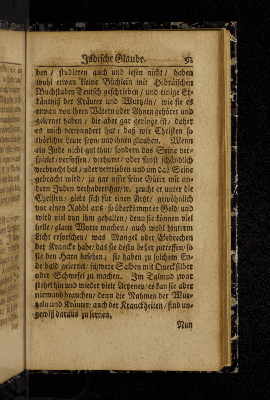 Jüdische Glaube. 53
ben / studieren auch und lesen nicht / haben
wohl etwan kleine Büchlein mit Hebräischen
Buchstaben Teutsch geschrieben / und einige Er-
käntniß der Kräuter und Wurtzeln / wie sie es
etwan von ihren Vätern oder Ahnen gehöret und
gelernet haben / die aber gar geringe ist / daher
es mich verwundert hat / daß wir Christen so
thörichte Leute seyn und ihnen glauben. Wenn
ein Jude nicht gut thut / sondern das Seine ver-
spielet / versoffen / verhuret / oder sonst schändlich
verbracht hat / oder vertrieben und um das Seine
gebracht wird / ja gar offte seine Güter mit an-
dern Juden verhadert / so zeucht er unter die
Christen / giebt sich für einen Artzt / gewöhnlich
vor einen Rabbi aus / so überkömmt er Geld / und
wird viel von ihm gehalten / denn sie können viel
helle / glatte Worte machen / auch wohl hinterm
Licht erforschen / was Mangel oder Gebrechen
der Krancke habe / das sie desto besser zutreffen / so
sie den Harn besehen; sie haben zu solchem En-
de bald gelernet / schwere Salben mit Quecksilber
oder Schwefel zu machen. Im Talmud zwar
stehet hin und wieder viele Artzeney / es kan sie aber
niemand brauchen / denn die Nahmen der Wur-
tzeln und Kräuter / auch der Kranckheiten / sind un-
gewiß daraus zu lernen.
Nun